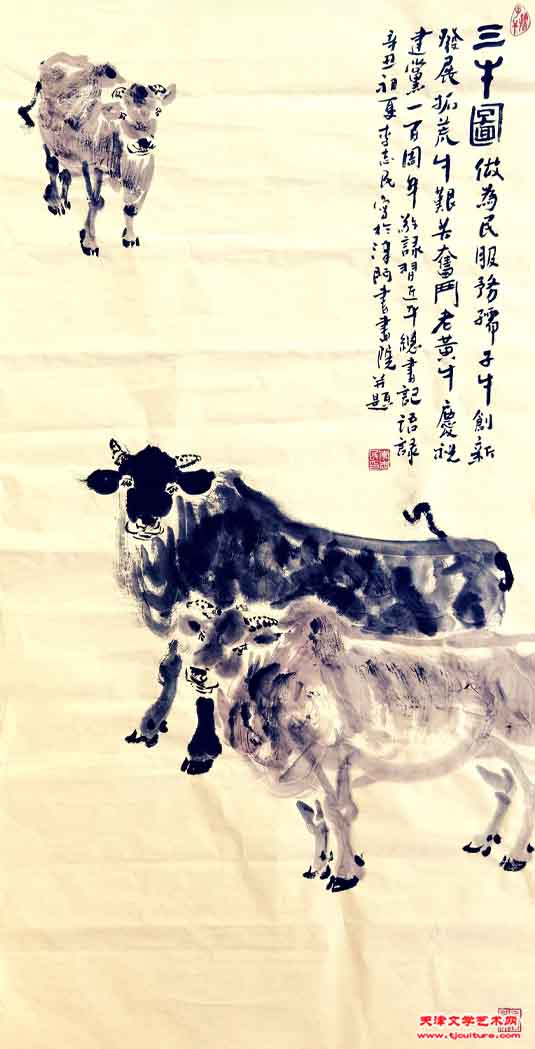 三牛圖 做為民服務孺子牛創新
發展拓荒牛艱苦奮鬥老黃牛慶祝
建黨一百周年敬録習近平總書記語録
辛丑初夏李志民寫於津門書畫院并題
天津文学艺术网
www.tjculture.com